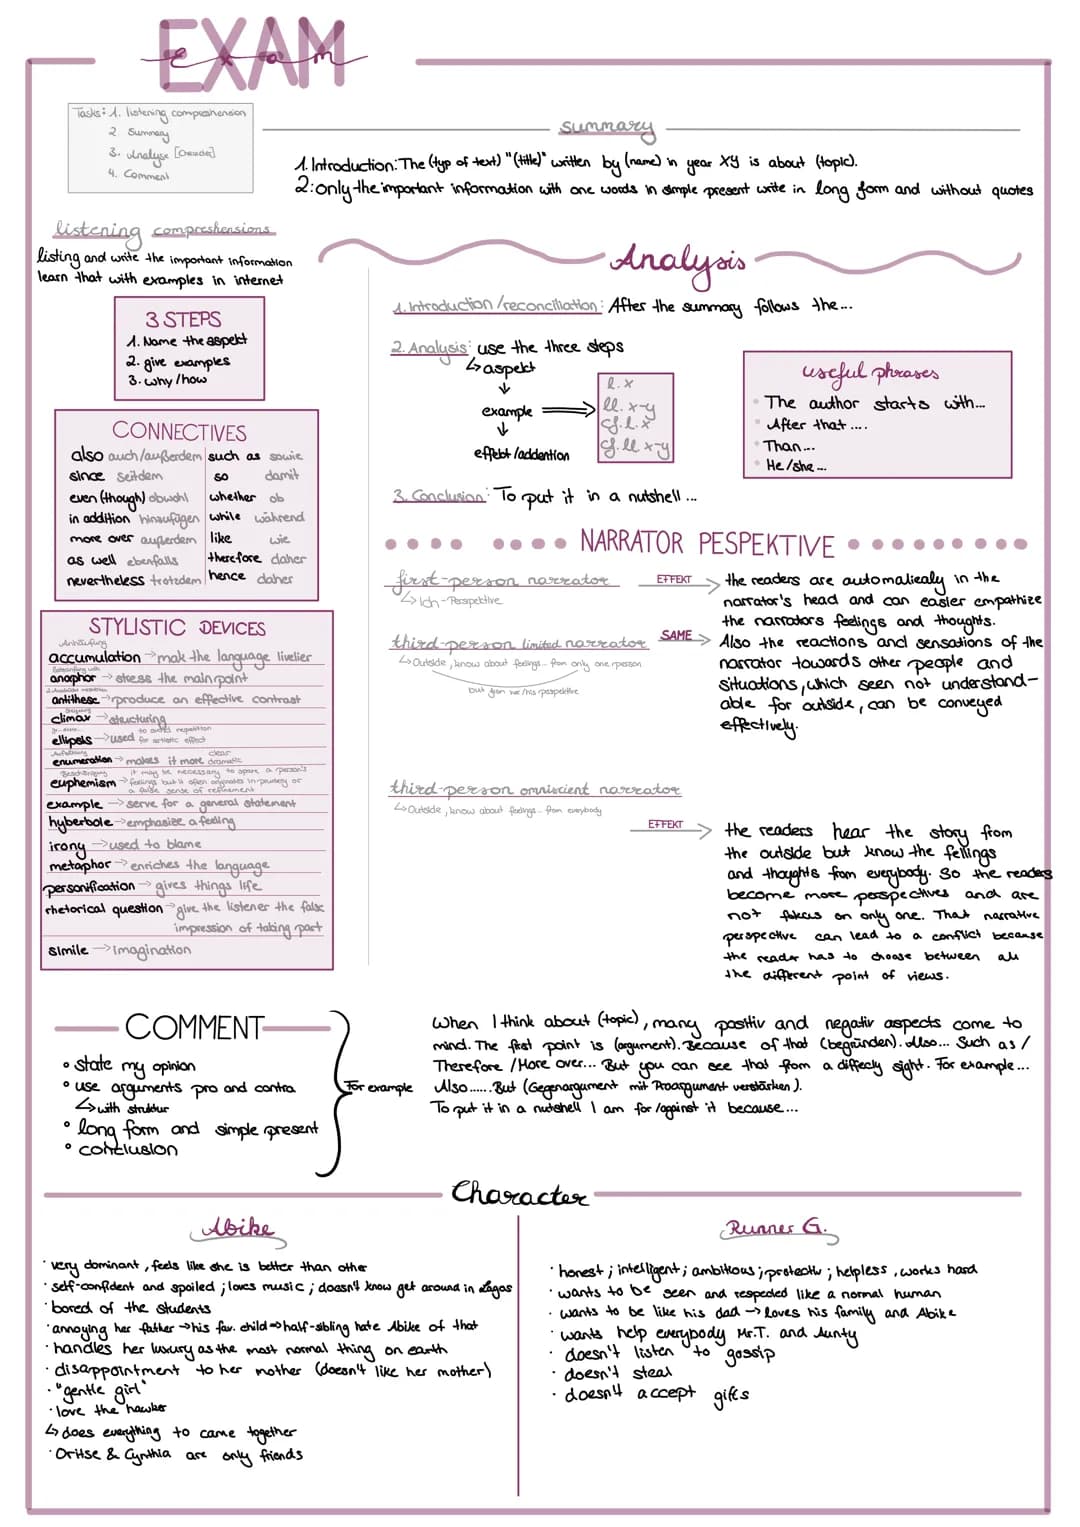 EXAM
exam
Tasks: 1. listening compreshension
2. Summary
3. Analyse
4. Comment
summary
1. Introduction: The (typ of text) "(title)" written by (name) in year XY is about (topic).
2: only the important information with one words in simple present write in long form and without quotes
listening compreshensions
listing and write the important information
learn that with examples in internet
3 STEPS
1. Name the aspekt
2. give examples
3. why/how
CONNECTIVES
also auch/außerdem such as sowie
since seitdem so damit
even (though) obwohl whether ob
in addition hinzufügen while während
more over außerdem like wie
as well ebenfalls therefore daher
nevertheless trotzdem hence daher
STYLISTIC DEVICES
Anhäufung
accumulation → mak the language livelier
anaphor → stress the main point
antithese → produce an effective contrast
climax → structuring
to avoid repetition
ellipsis → used for artistic effect
clear
enumeration → makes it more dramatic
it may be necessary to spare a person's
euphemism → feelings but it often originates in prudery or
a false sense of refinement
example → serve for a general statement
hyberbole → emphasize a feeling
irony → used to blame
metaphor → enriches the language
personification → gives things life
rhetorical question → give the listener the false
impression of taking part
simile → imagination
Analysis
1. Introduction/reconcilation: After the summary follows the...
2. Analysis: use the three steps
↳ aspekt
↓
example ⇒
↓
effekt/addention
l. x
ll. x-y
cf. l. x
cf. ll x-y
useful phrases
• The author starts with...
• After that ....
• Than...
• He/she...
3. Conclusion: To put it in a nutshell ...
NARRATOR PESPEKTIVE
first-person narrator
↳ Ich-Perspektive
EFFEKT →
the readers are automaliealy in the
narrator's head and can easier empathize
the narrators feelings and thoughts.
third-person limited narrator
↳ Outside, know about feelings... from only one person
but from her/his perspektive
SAME →
Also the reactions and sensations of the
narrator towards other people and
situations, which seen not understand-
able for outside, can be conveyed
effectively.
third-person omniscient narrator
↳ Outside, know about feelings... from everybody
EFFEKT →
the readers hear the story from
the outside but know the fellings
and thoughts from everybody. So the readers
become more perspectives and are
not fokus on only one. That narrative
perspective can lead to a conflict because
the reader has to choose between all
the different point of views.
COMMENT
• state my opinion
• use arguments pro and contra
↳ with struktur
• long form and simple present
• conclusion
For example
When I think about (topic), many positiv and negativ aspects come to
mind. The first point is (argument). Because of that (begründen). Also... Such as /
Therefore / More over... But you can see that from a differcly sight. For example...
Also...... But (Gegenargument mit Proargument verstärken).
To put it in a nutshell I am for/against it because...
Character
Abike
· very dominant, feels like she is better than other
· self-confident and spoiled; loves music; doesn't know get around in Lagos
· bored of the students
· annoying her father → his fav. child ⇒ half-sibling hate Abike of that
· handles her luxury as the most normal thing on earth
· disappointment to her mother (doesn't like her mother)
· "gentle girl"
· love the hawker
↳ does everything to came together
· Oritse & Cynthia are only friends
Runner G.
· honest; intelligent; ambitious; protectiv; helpless, works hard
· wants to be seen and respected like a normal human
· wants to be like his dad → loves his family and Abike
· wants help everybody Mr.T. and Aunty
· doesn't listen to gossip
· doesn't steal
· doesn't accept gifts